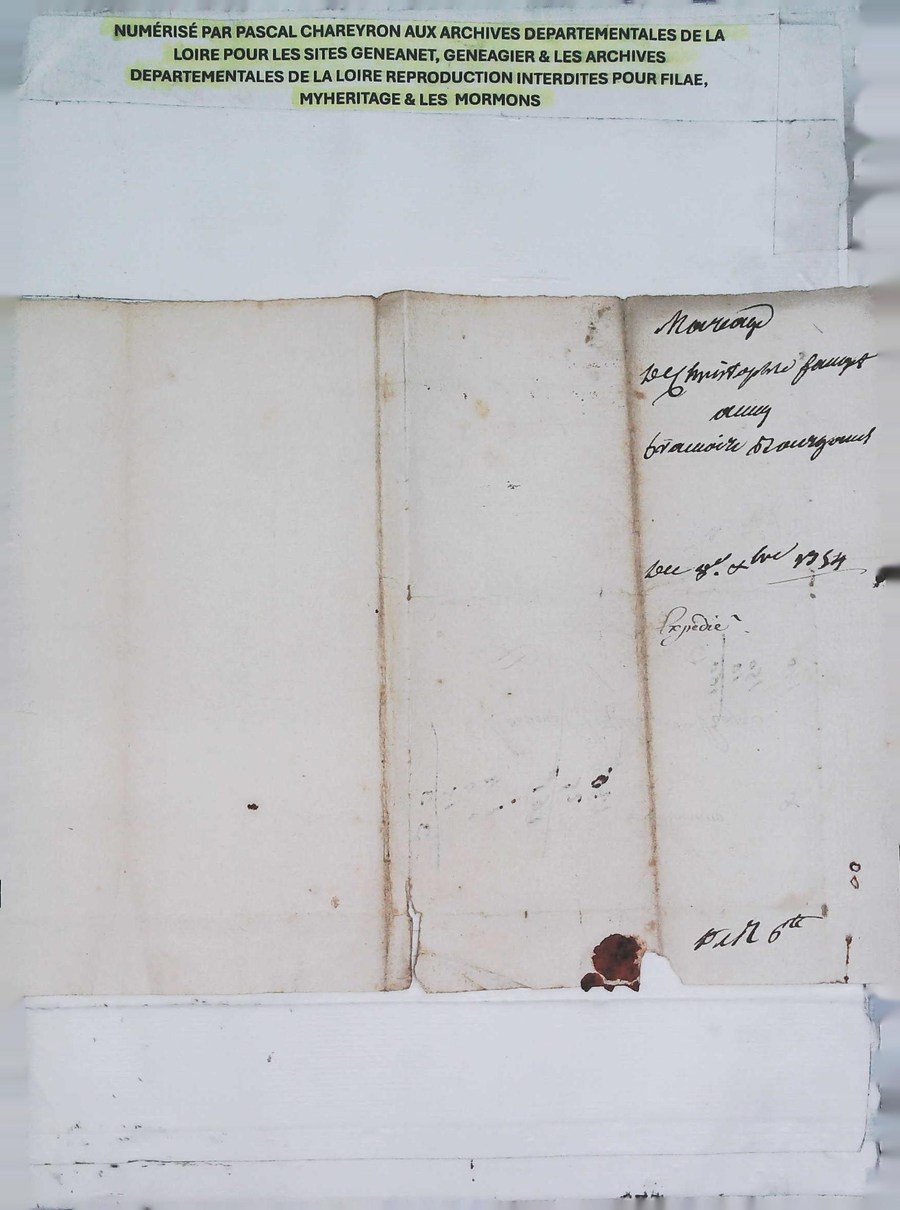 NUMÉRISÉ PAR PASCAL CHAREYRON AUX ARCHIVES DEPARTEMENTALES DE LA
LOIRE POUR LES SITES GENEANET, GENEAGIER & LES ARCHIVES
DEPARTEMENTALES DE LA LOIRE REPRODUCTION INTERDITES POUR FILAE,
MYHERITAGE & LES MORMONS
Mariage
De Christophe
avec
Du 8e 8bre 1754
Expedié